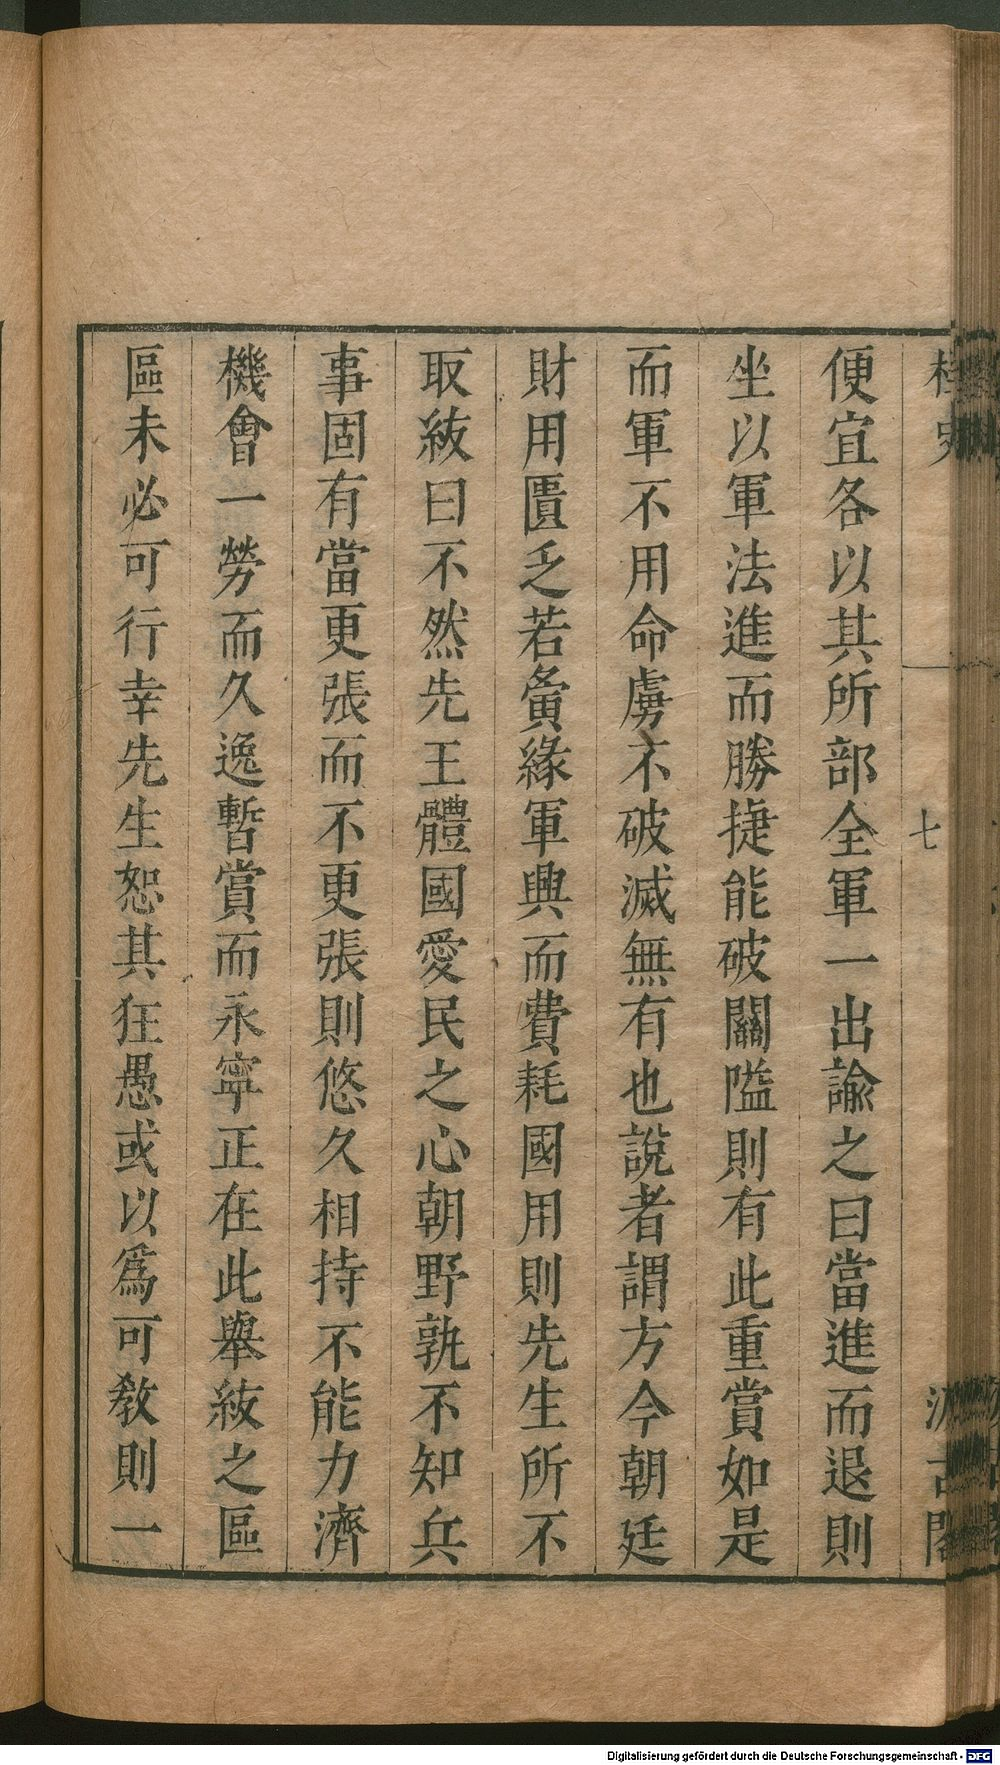 桯史
七
汲古閣
便宜各以其所部全軍一出諭之曰當進而退則
坐以軍法進而勝捷能破關隘則有此重賞如是
而軍不用命虜不破滅無有也說者謂方今朝廷
財用匱乏若夤緣軍興而費耗國用則先生所不
取紱曰不然先王體國愛民之心朝野孰不知兵
事固有當更張而不更張則悠久相持不能力濟
機會一勞而久逸暫賞而永寧正在此舉紱之區
區未必可行幸先生恕其狂愚或以爲可敎則一
Digitalisierung gefördert durch die Deutsche Forschungsgemeinschaft - DFG